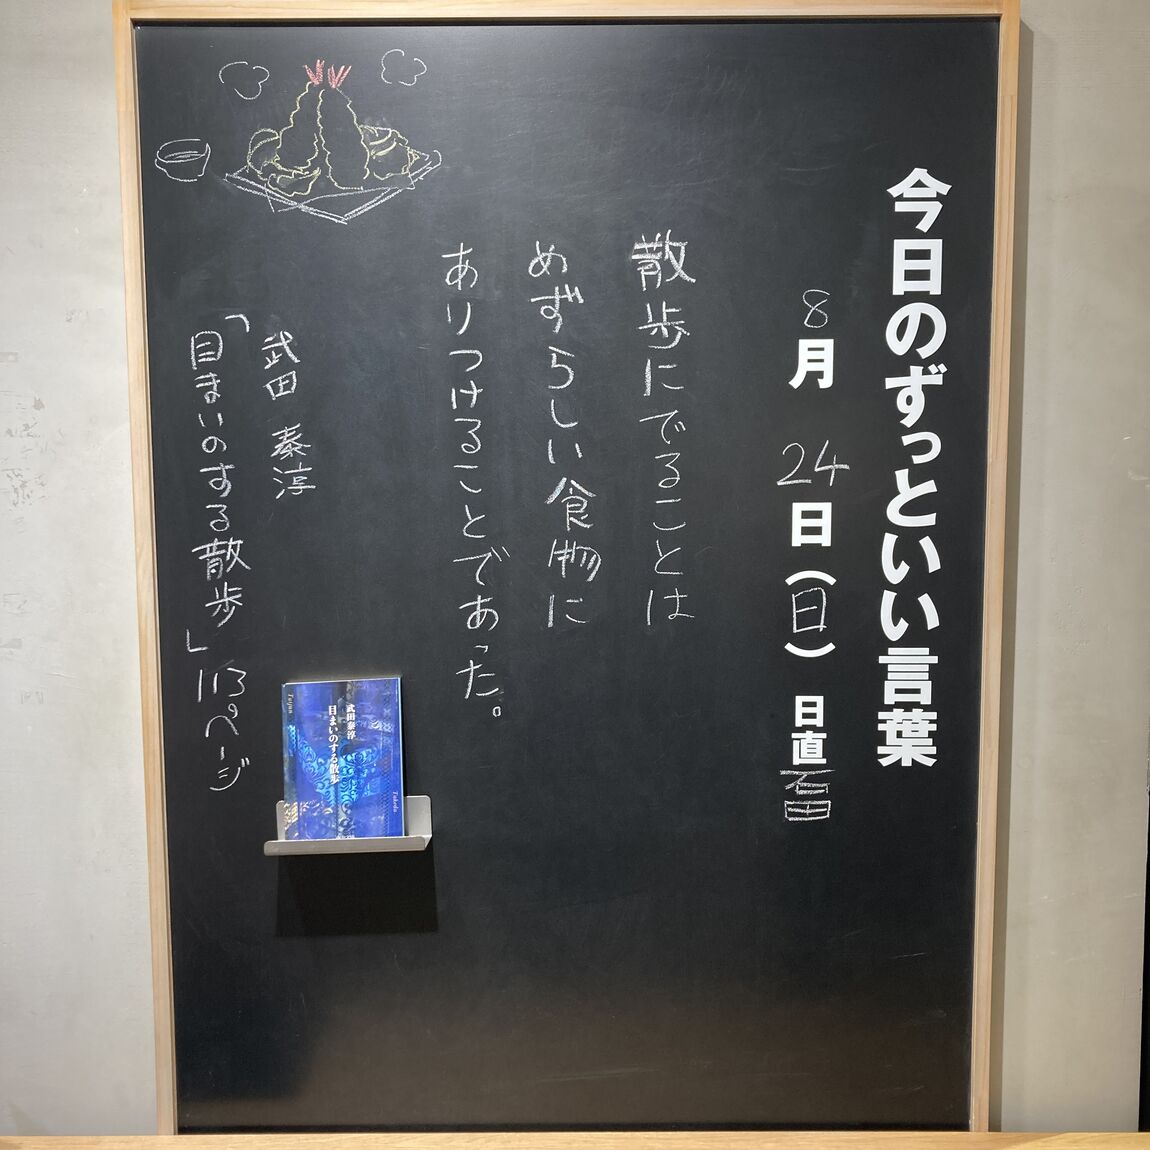 今日のずっといい言葉
8月24日(日) 日直 石田
散歩にでることは
めずらしい食物に
ありつけることであった。
武田 泰淳
「目まいのする散歩」113ページ
武田泰淳
目まいのする散歩
Taijun
Takeda